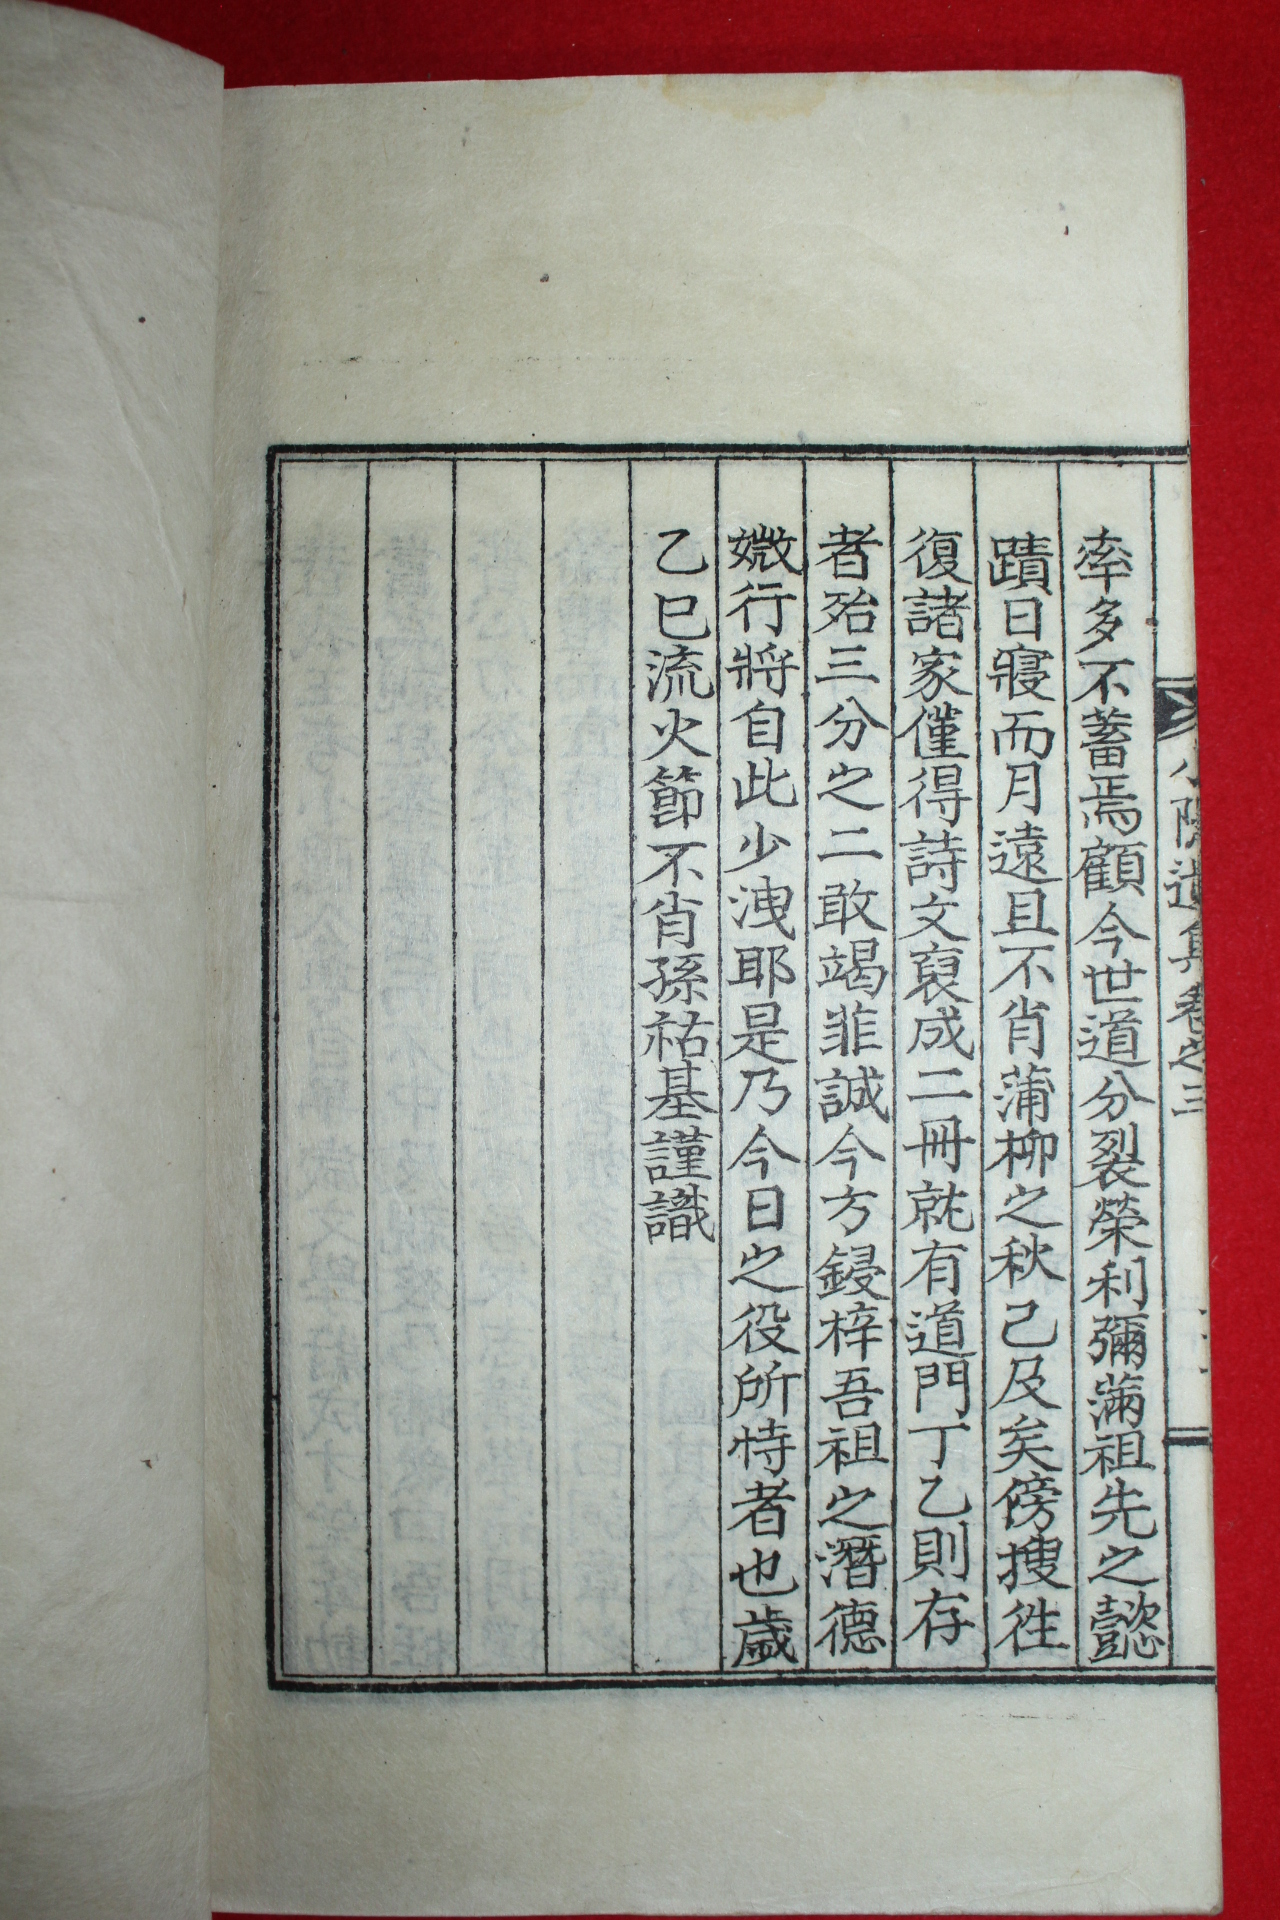 率多不蓄焉顧今世道分裂榮利彌滿祖先之懿
蹟日寢而月遠且不肖蒲柳之秋己及矣傍搜徃
復諸家僅得詩文裒成二冊就有道門丁乙則存
者殆三分之二敢竭菲誠今方鋟梓吾祖之潛德
媺行將自此少洩耶是乃今日之役所恃者也歲
乙巳流火節不肖孫祐基謹識
隱遺集卷之三